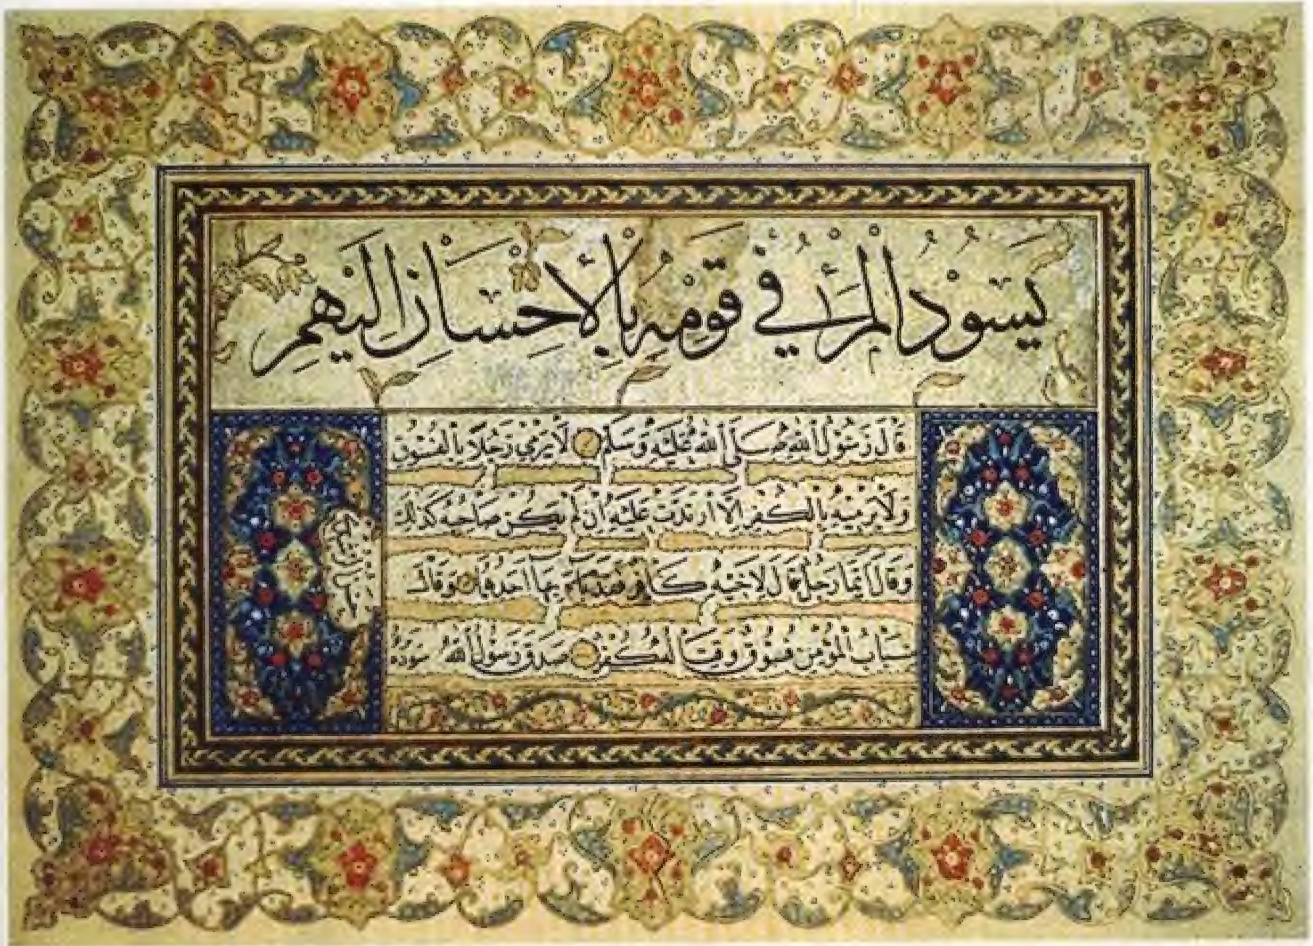 يَسُودُ الْمَرْءُ فِي قَوْمِهِ بِالْإِحْسَانِ إِلَيْهِمْ
قال رسول الله صلى الله عليه وسلم لا يرمي رجل رجلا بالفسوق
ولا يرميه بالكفر الا ارتدت عليه ان لم يكن صاحبه كذلك
وقال ايما رجل قال لاخيه كافر فقد باء بها احدهما وقال
سباب المؤمن فسوق وقتاله كفر صدق رسول الله سوده